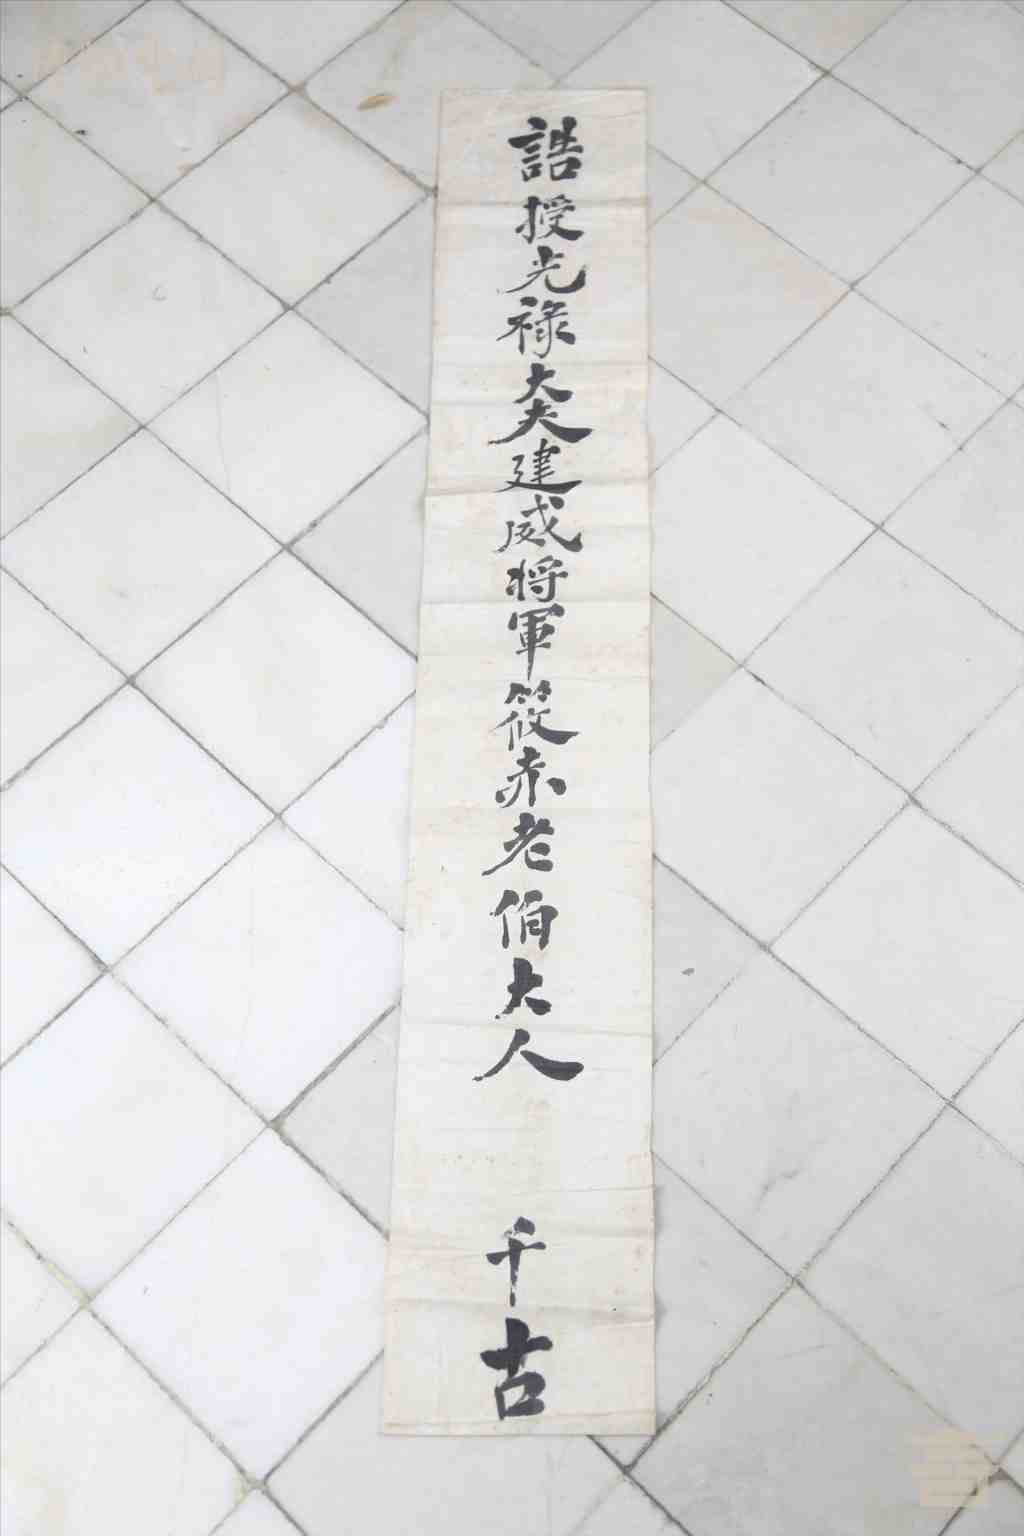 誥授光祿大夫建威將軍筱赤老伯大人 千古